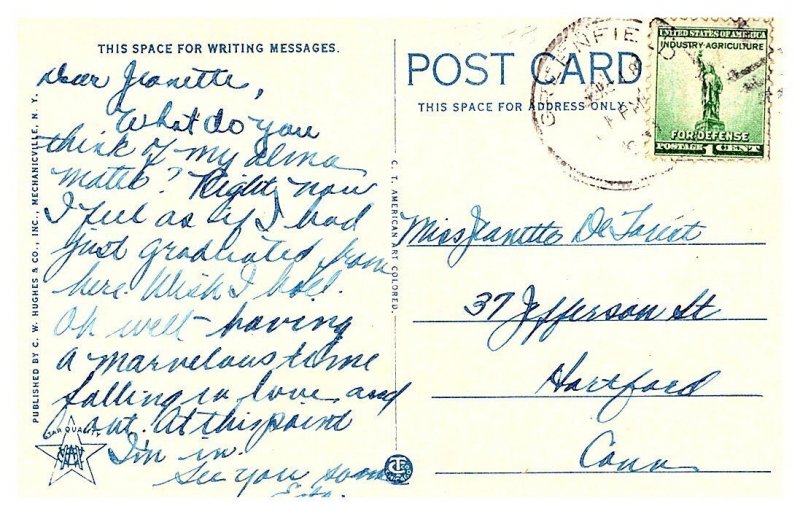 THIS SPACE FOR WRITING MESSAGES.
Dear Jeanette,
What do you
think of my alma
mater? Right now
I feel as if I had
just graduated from
here. Wish I had.
Oh well - having
a marvelous time
falling in love and
out. At this point
I'm in.
See you soon
PUBLISHED BY C. W. HUGHES & CO., INC., MECHANICVILLE, N. Y.
STAR QUALITY
C. T. AMERICAN ART COLORED.
POST CARD
THIS SPACE FOR ADDRESS ONLY.
GREENFIELD
UNITED STATES OF AMERICA
INDUSTRY-AGRICULTURE
FOR DEFENSE
POSTAGE 1 CENT
Miss Jeanette
37 Jefferson St
Hartford
Conn